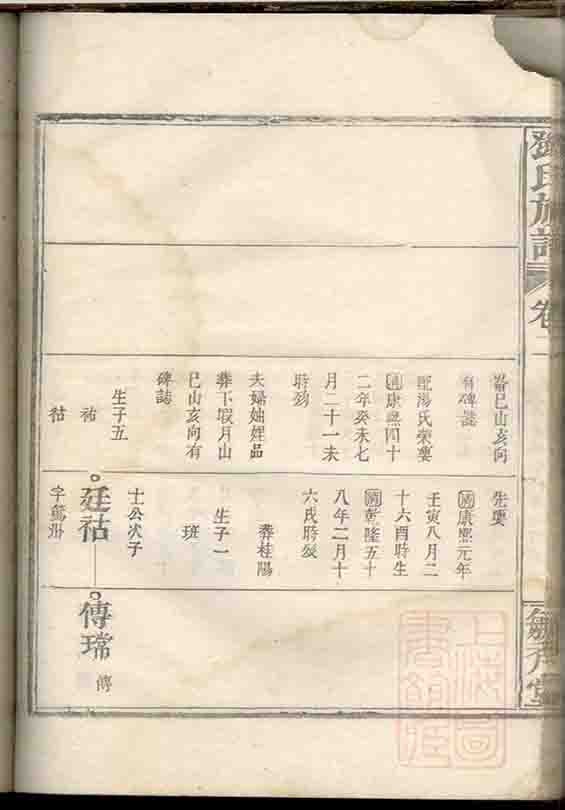 鄧氏族譜
卷二
巳山亥向
有碑誌
配湯氏榮要
國康熙四十
二年癸未七
月二十一未
時歿
夫婦妯娌品
葬下坂月山
巳山亥向有
碑誌
生子五
祜
祜
先要
國康熙元年
壬寅八月二
十六酉時生
國乾隆五十
八年二月十
六戌時歿
葬桂陽
生子一
班
士公次子
廷祜
字
傳瑺
傳
上海圖
書館藏